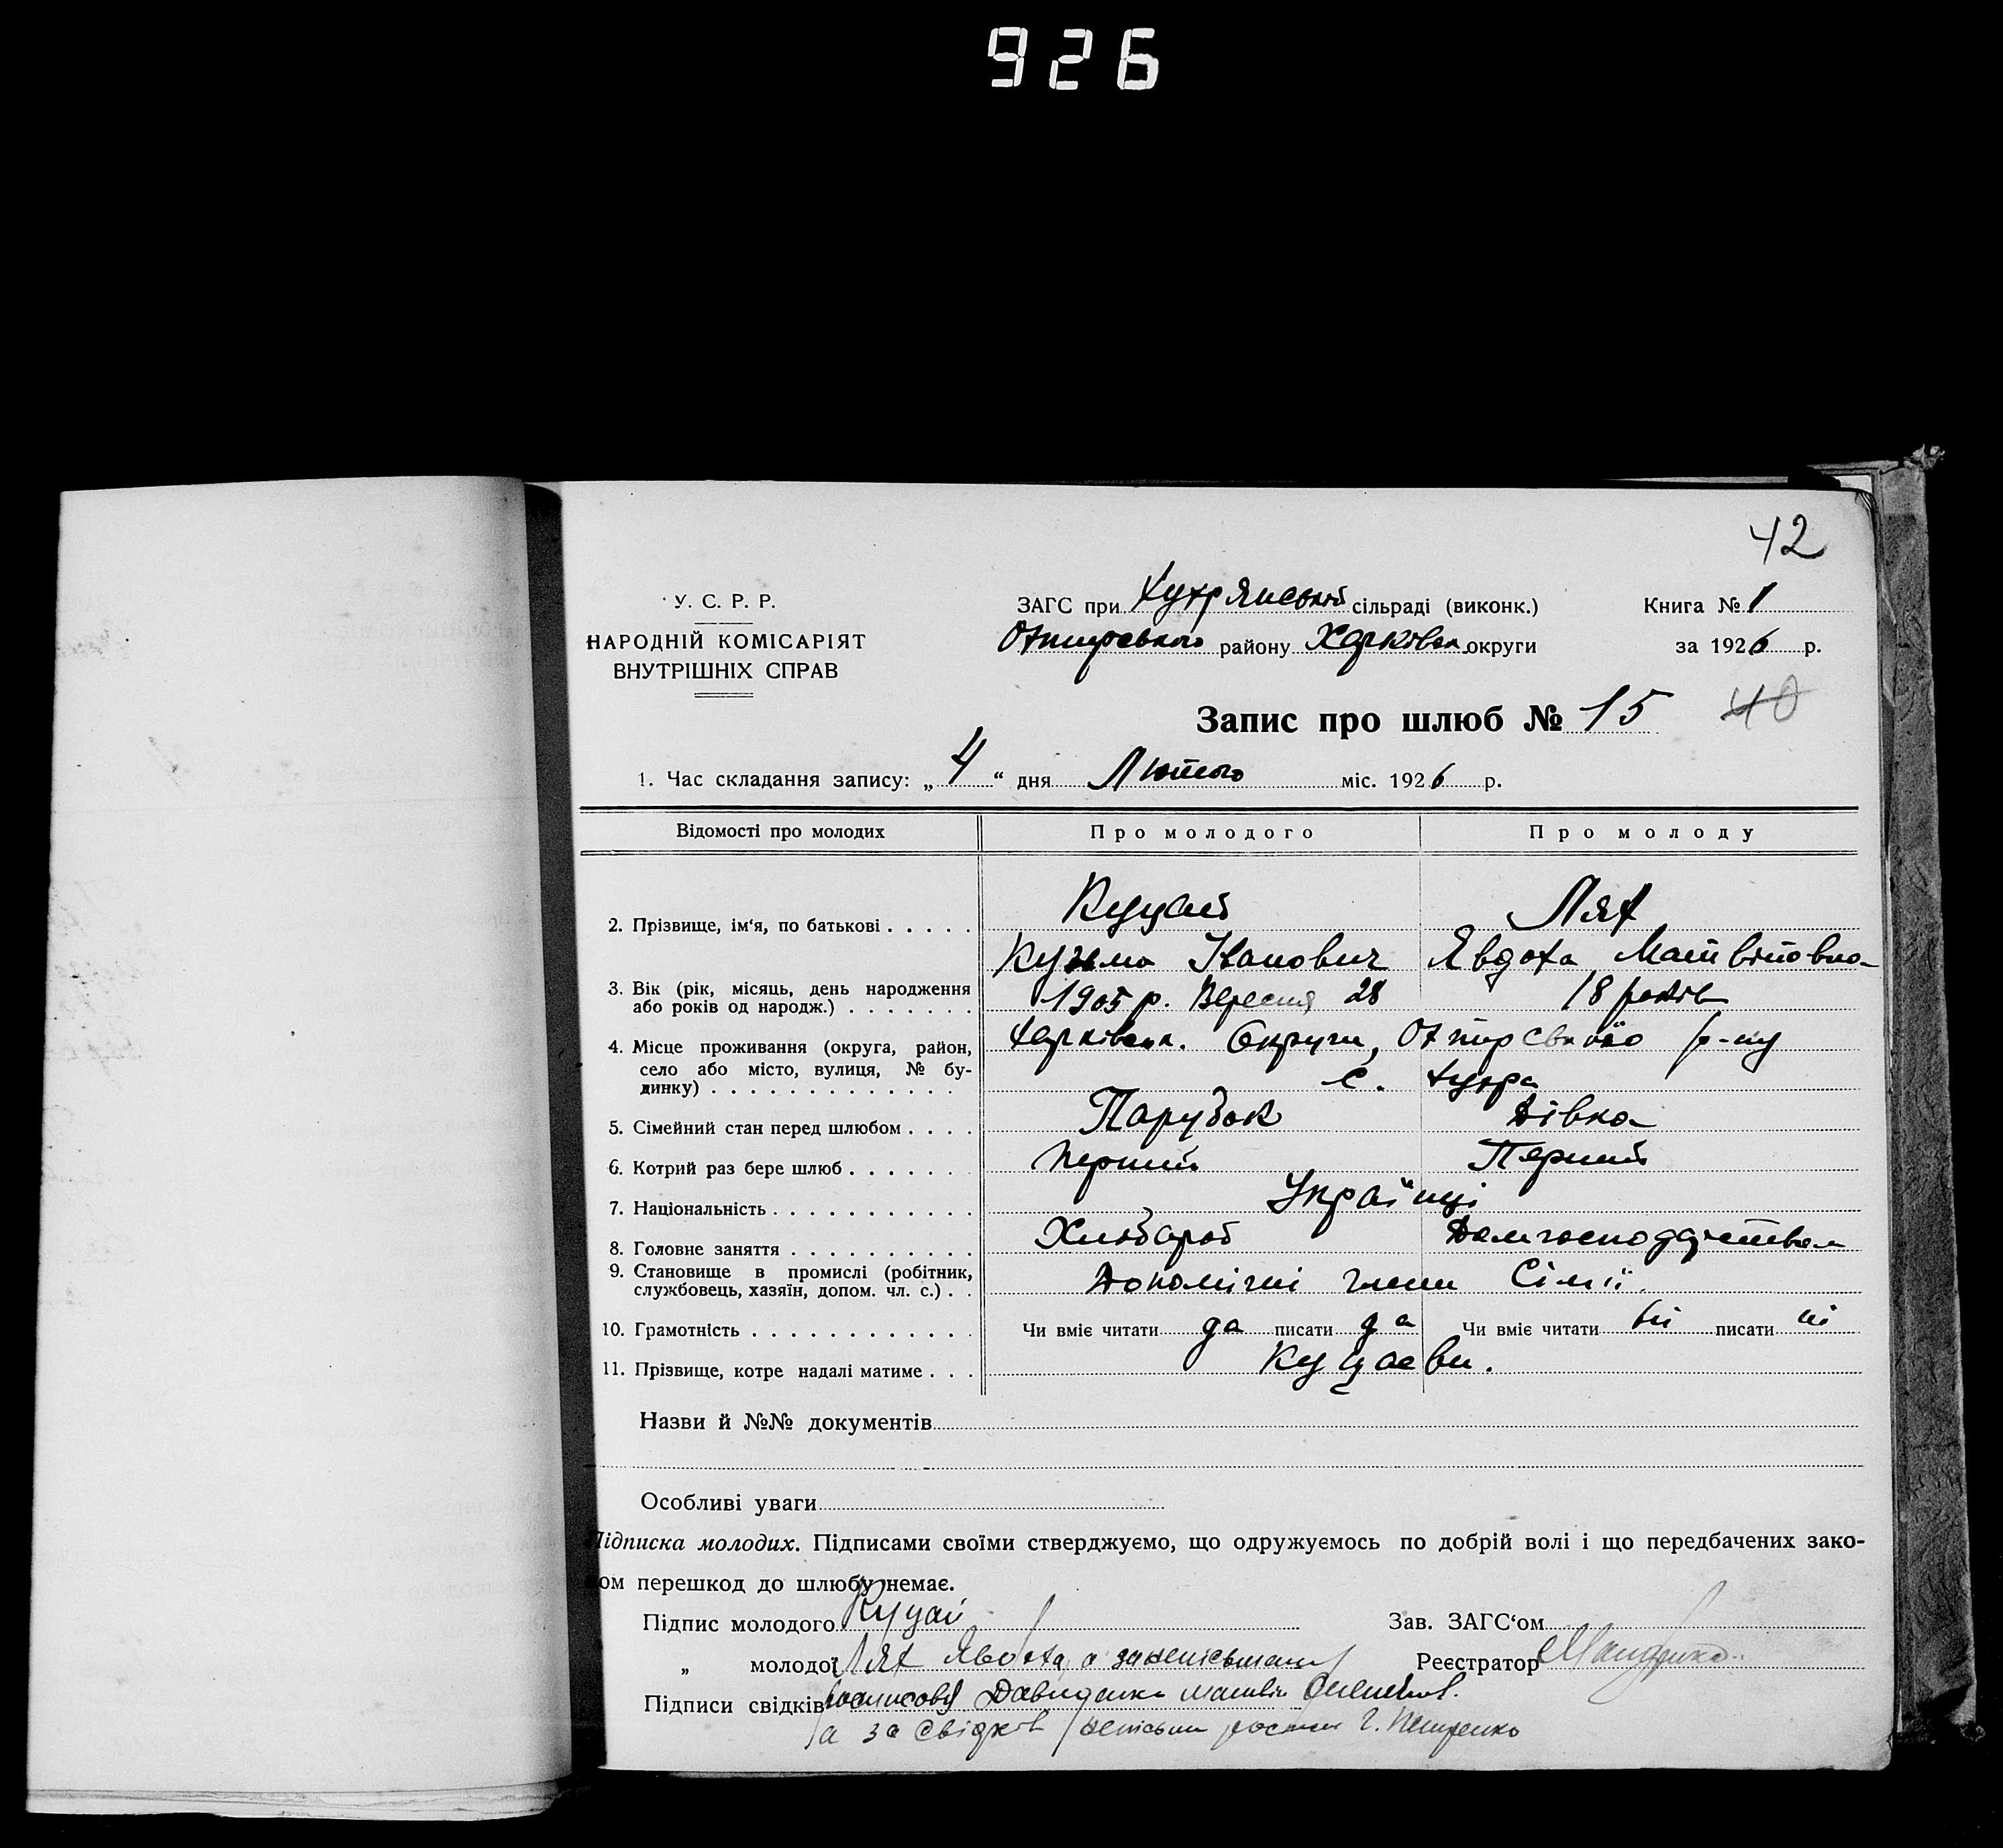 926
42
У. С. Р. Р.
НАРОДНІЙ КОМІСАРІЯТ
ВНУТРІШНІХ СПРАВ
ЗАГС при Хухрянській сільраді (виконк.)
Охтирського району Харківськ. округи
Книга № 1
за 1926 р.
Запис про шлюб № 15
40
1. Час складання запису: „4“ дня Лютого міс. 1926 р.
Відомості про молодих Про молодого Про молоду
2. Прізвище, ім‘я, по батькові . . . . . Куцай Лях
Кузьма Іванович Явдоха Матвіїовна
3. Вік (рік, місяць, день народження
або років од народж.) . . . . . . . 1905 р. Вересня 28 18 років
4. Місце проживання (округа, район,
село або місто, вулиця, № бу-
динку) . . . . . . . . . . . . .
Харківськ. Округи, Охтирського р-ну
с. Хухра
5. Сімейний стан перед шлюбом . . . . Парубок Дівка
6. Котрий раз бере шлюб . . . . . . . Перший Перший
7. Національність . . . . . . . . . . . Українці
8. Головне заняття . . . . . . . . . . Хлібороб Домгосподарством
9. Становище в промислі (робітник,
службовець, хазяїн, допом. чл. с.) . . Допомічні члени Сімії.
10. Грамотність . . . . . . . . . . . . Чи вміє читати да писати да Чи вміє читати ні писати ні
11. Прізвище, котре надалі матиме . . . Куцаєви.
Назви й №№ документів
Особливі уваги
Підписка молодих. Підписами своїми стверджуємо, що одружуємось по добрій волі і що передбачених зако-
ном перешкод до шлюбу немає.
Підпис молодого Куцай Зав. ЗАГС‘ом
„ молодої Лях Явдоха, а за неписьмену Реєстратор
Підписи свідків Давиденко Матвій
а за свідків неписьм. Г. Петренко